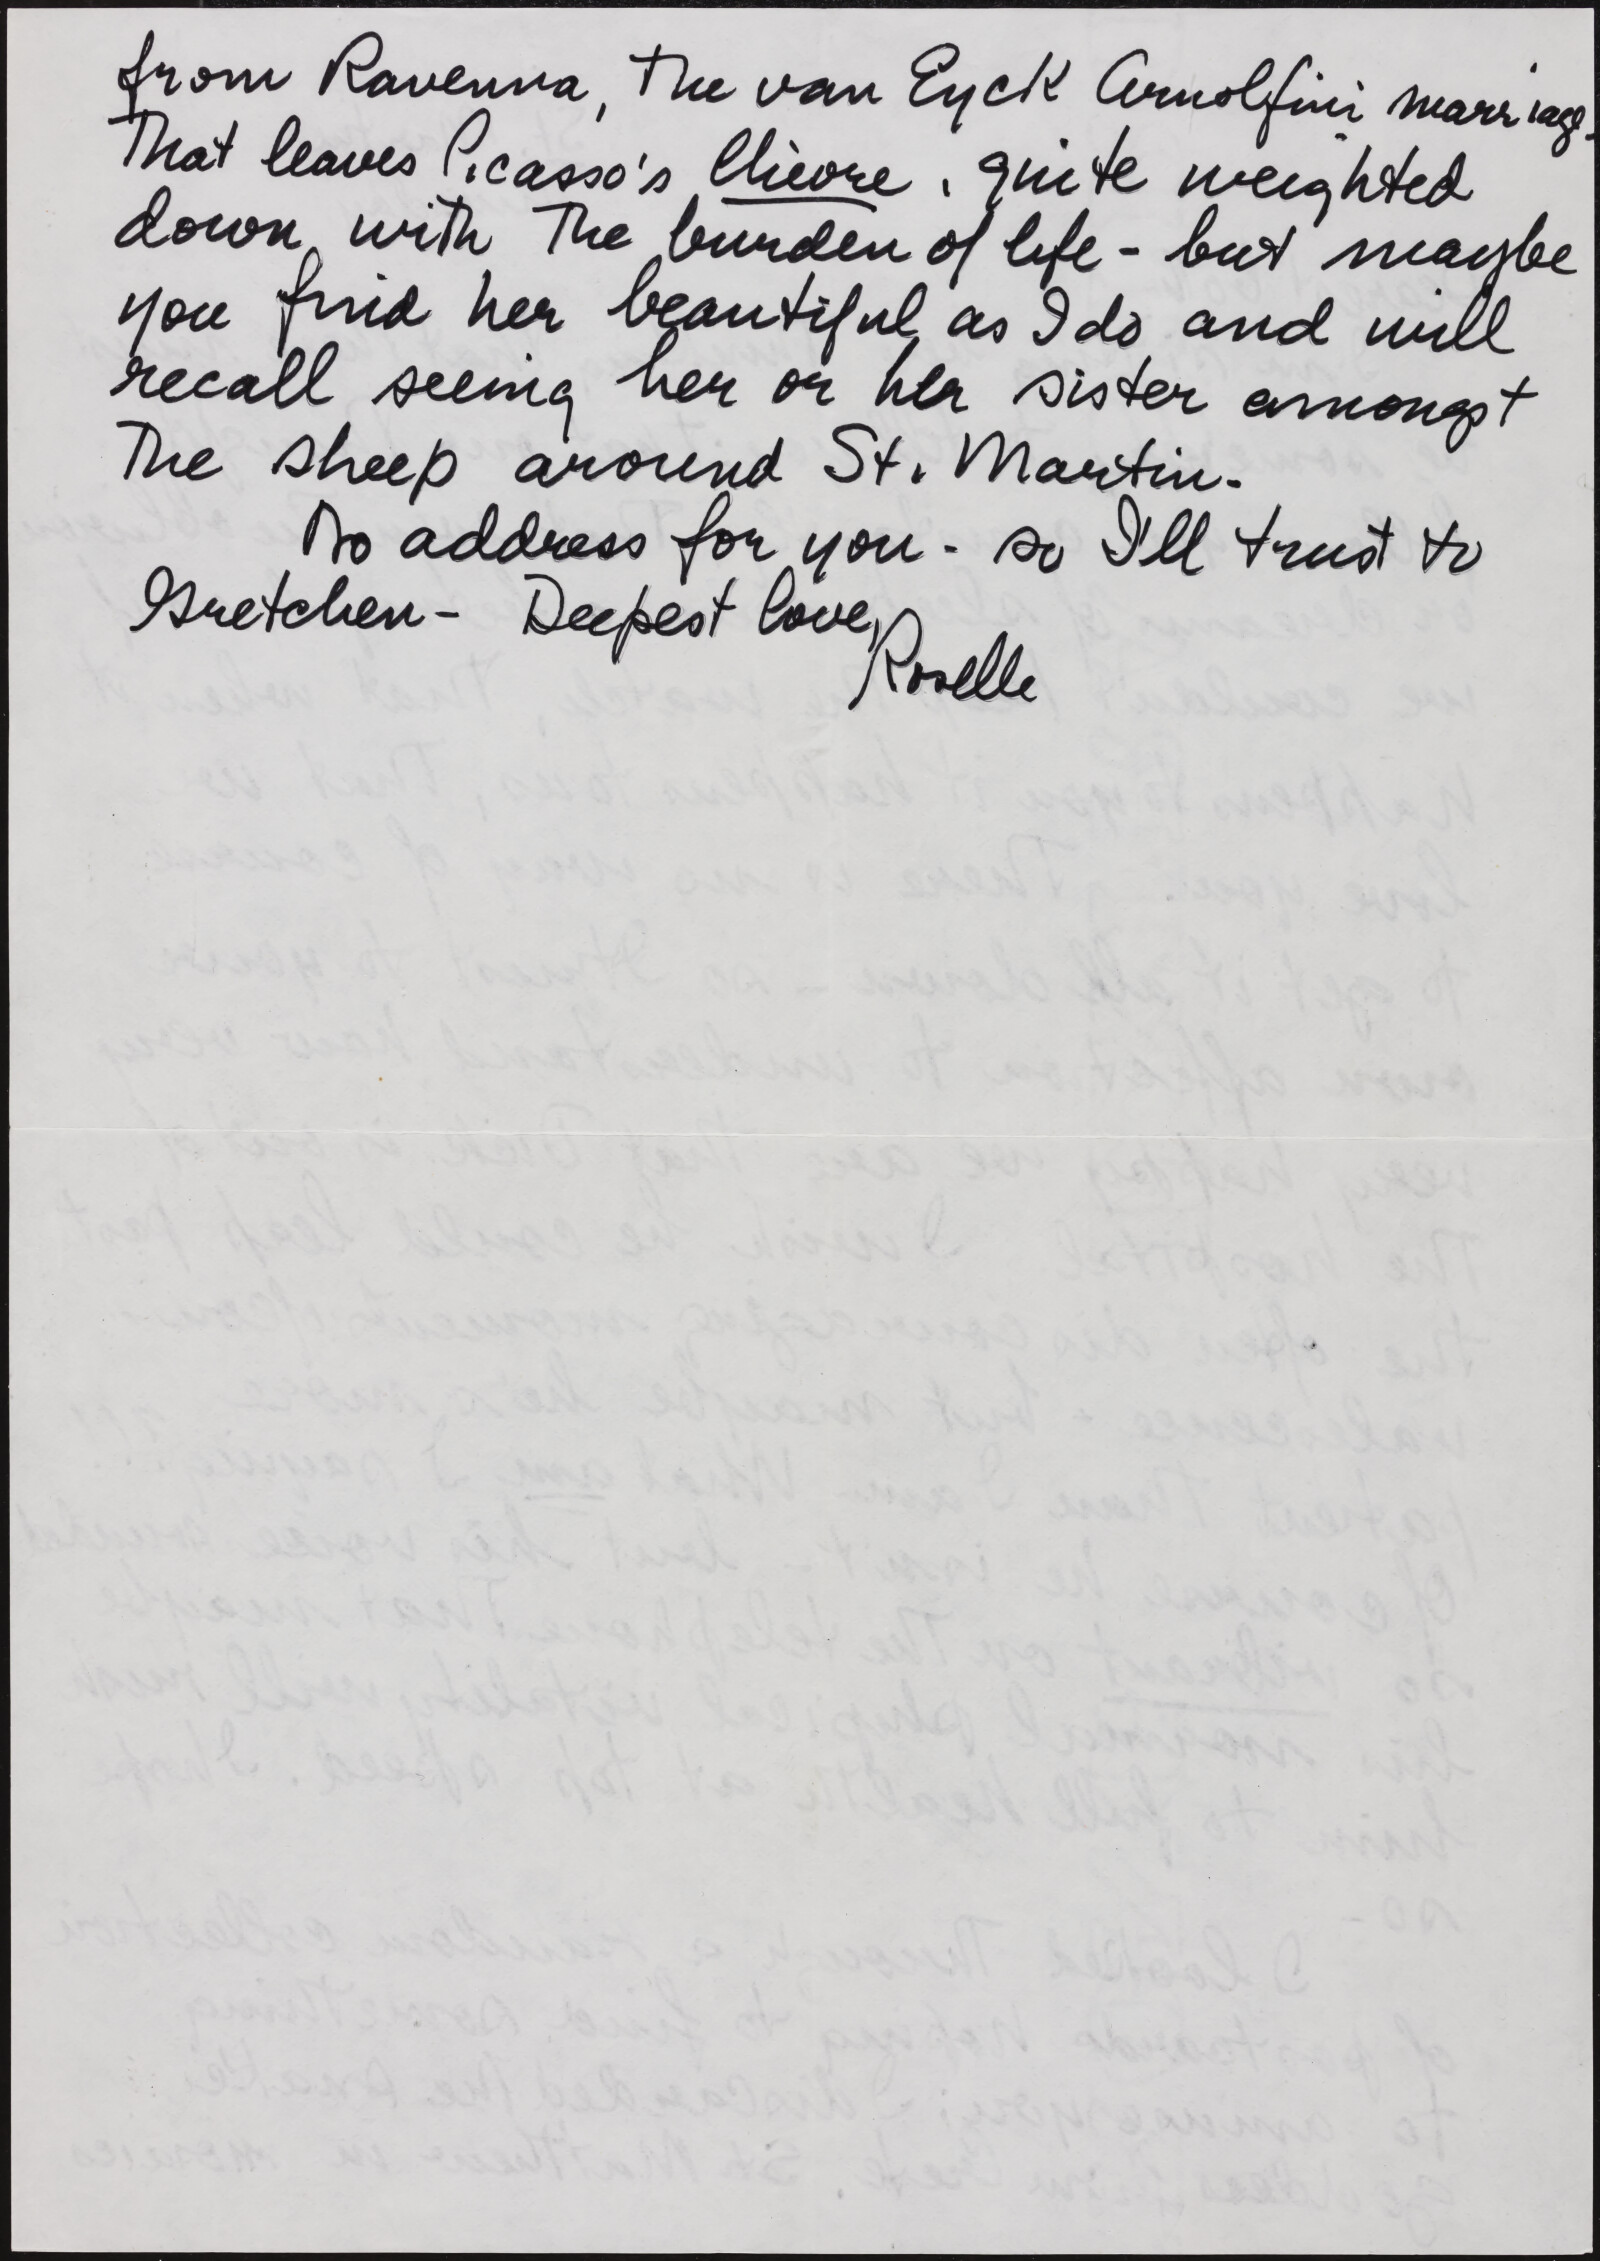 from Ravenna, the van Eyck Arnolfini marriage.
That leaves Picasso's Chèvre, quite weighted
down with the burden of life - but maybe
you find her beautiful as I do and will
recall seeing her or her sister amongst
the sheep around St. Martin.
No address for you - so I'll trust to
Gretchen - Deepest love,
Roselle